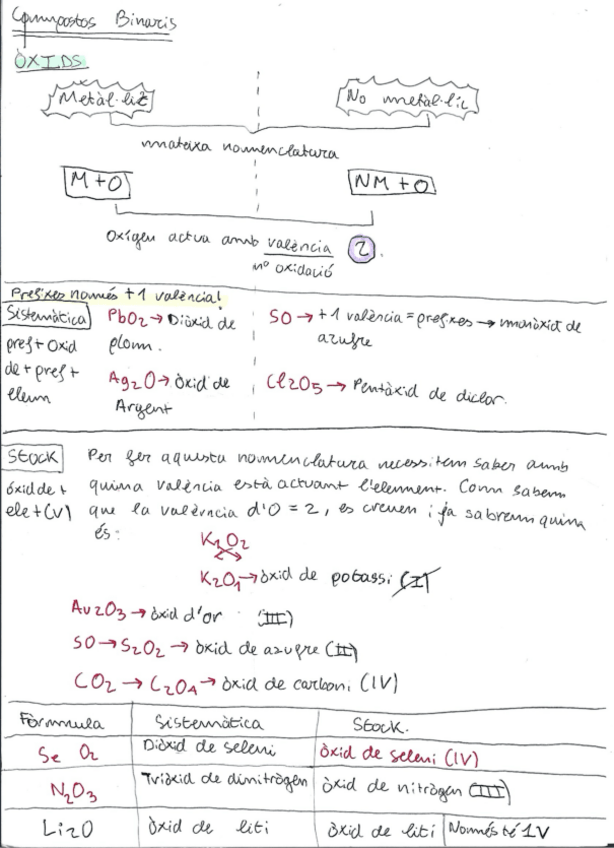 Compostos Binaris
ÒXIDS
Metàl·lic No metàl·lic
mateixa nomenclatura
M+O NM+O
Oxígen actua amb valència 2.
nº oxidació
Prefixes només +1 valència!
Sistemàtica PbO2→Diòxid de plom.
pref+Oxid
de+pref+
elem
Ag2O→òxid de
Argent
SO→+1 valència=prefixes→monòxit de
azufre
Cl2O5→Pentàxid de diclor.
STOCK Per fer aquesta nomenclatura necessitem saber amb
òxid de+ quina valència està actuant l'element. Com sabem
ele+(V) que la valència d'O=2, es creuen i ja sabrem quina
és:
K1O2
K2O1→òxid de potassi (I)
Au2O3→òxid d'or (III)
SO→S2O2→òxid de azufre (II)
CO2→C2O4→òxid de carboni (IV)
Fòrmula Sistemàtica Stock.
SeO2 Diòxid de seleni òxid de seleni (IV)
N2O3 Triòxid de dinitrògen òxid de nitrògen (III)
Li2O òxid de liti òxid de liti Només té 1V